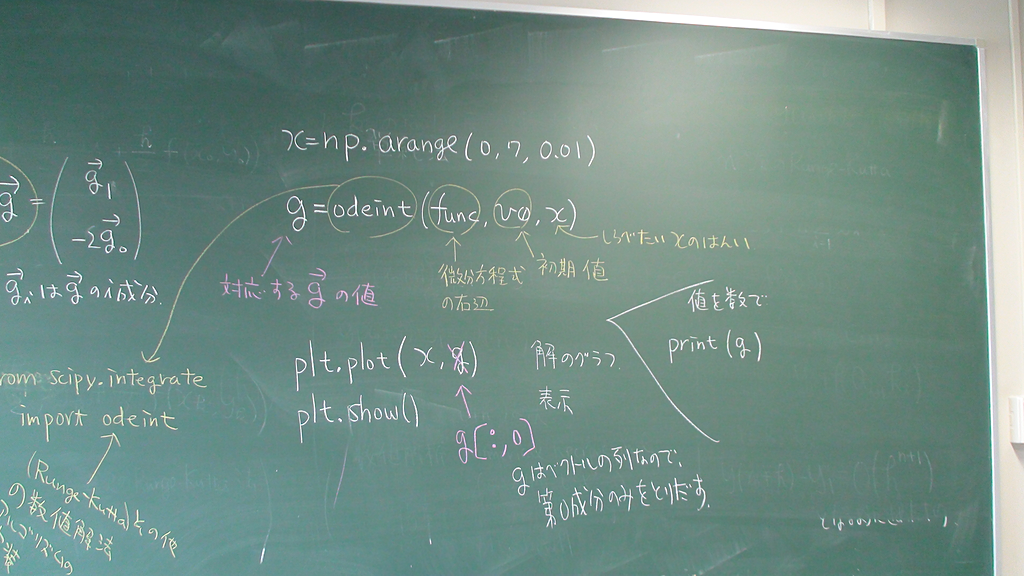 x=np.arange(0,7,0.01)
g⃗ = (g⃗₁
-2g⃗₀)
g=odeint(func,v0,x)
しらべたいxのはんい
g⃗ᵢはg⃗のi成分.
対応するg⃗の値
微分方程式
の右辺
初期値
値を数で
print(g)
plt.plot(x,g)
解のグラフ
表示
plt.show()
g[:,0]
gはベクトルの列なので、
第0成分のみをとりだす.
rom scipy.integrate
import odeint
(Runge-Kuttaその他
の数値解法